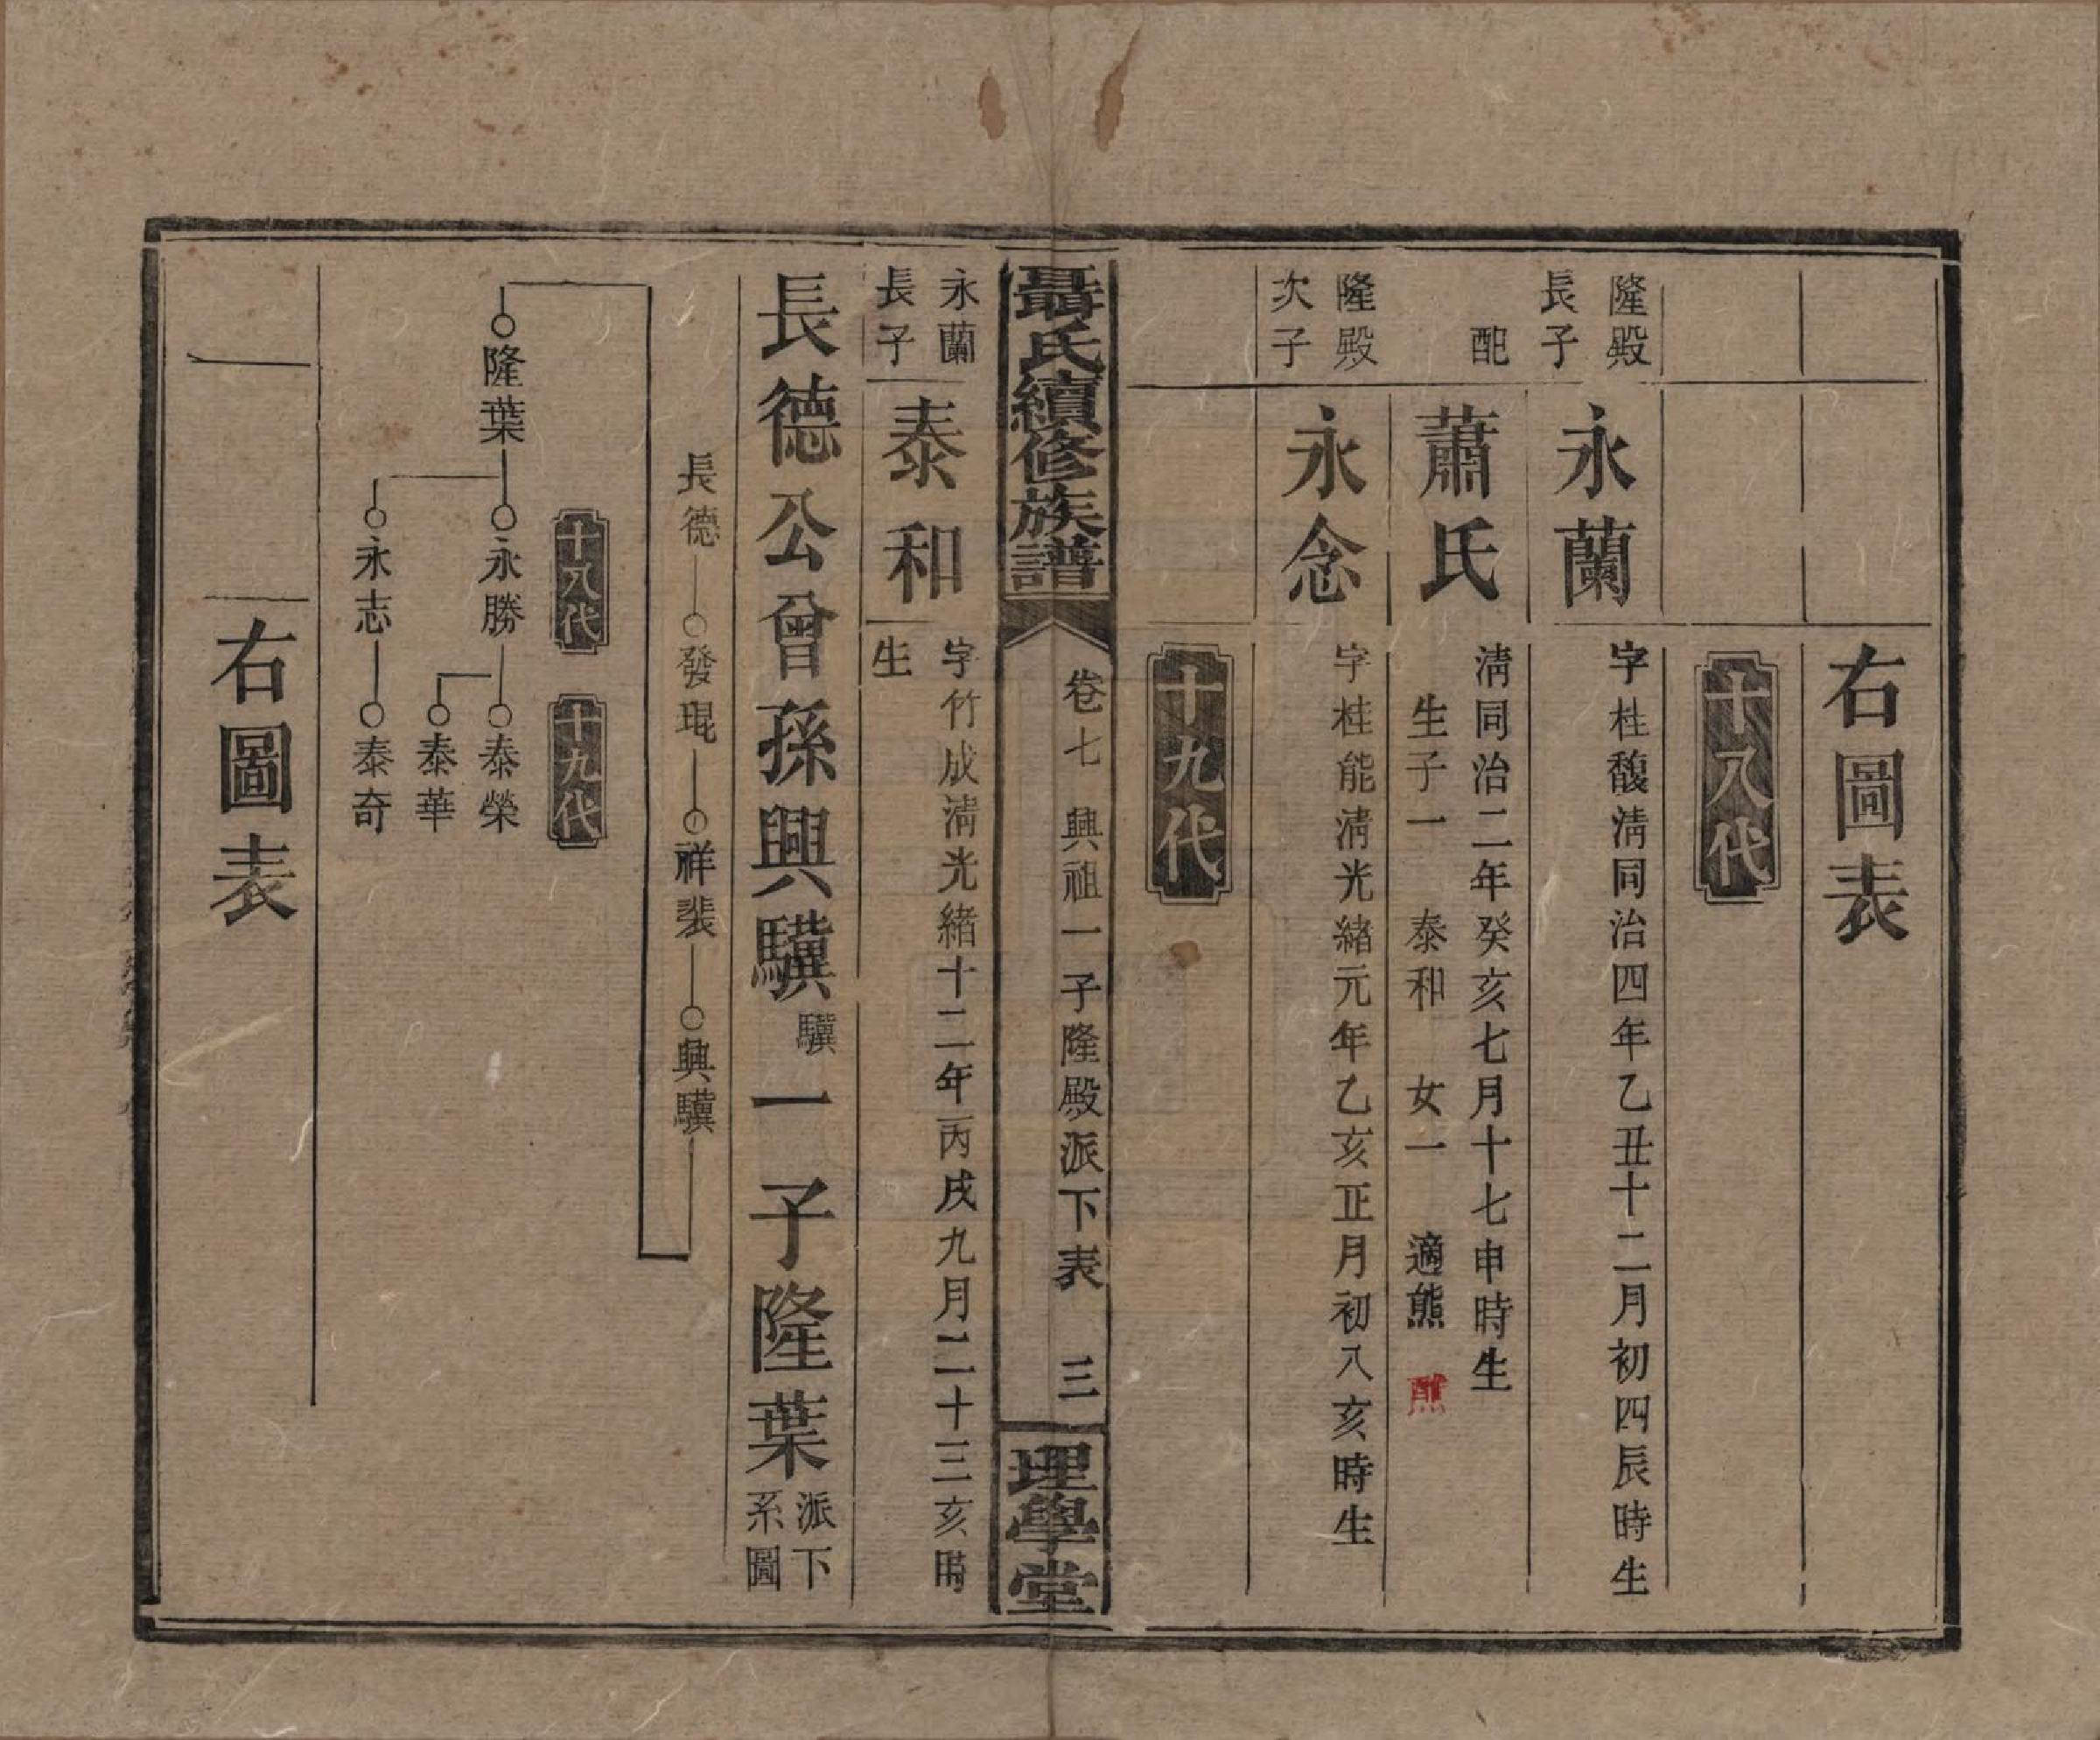 右圖表
十八代
隆殿
長子
永蘭
字桂馥淸同治四年乙丑十二月初四辰時生
配
蕭氏
淸同治二年癸亥七月十七申時生
生子一 泰和 女一 適熊
隆殿
次子
永念
字桂能淸光緒元年乙亥正月初八亥時生
十九代
聶氏續修族譜
卷七 興祖一子隆殿派下表 三
理學堂
永蘭
長子
泰和
字竹成淸光緒十二年丙戌九月二十三亥時
生
長德公曾孫興驥驥一子隆葉派下
系圖
長德 發琨 祥裴 興驥
十八代
十九代
隆葉 永勝 泰榮
泰華
永志 泰奇
右圖表